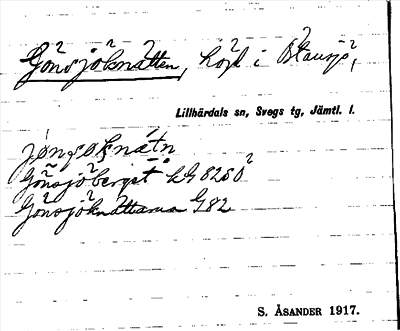 Gönsjöknätten, höjd i Blåsjö,
Lillhärdals sn, Svegs tg, Jämtl. l.
Gönsjöberget LG 8260
Gönsjöknättarna G82
S. ÅSANDER 1917.